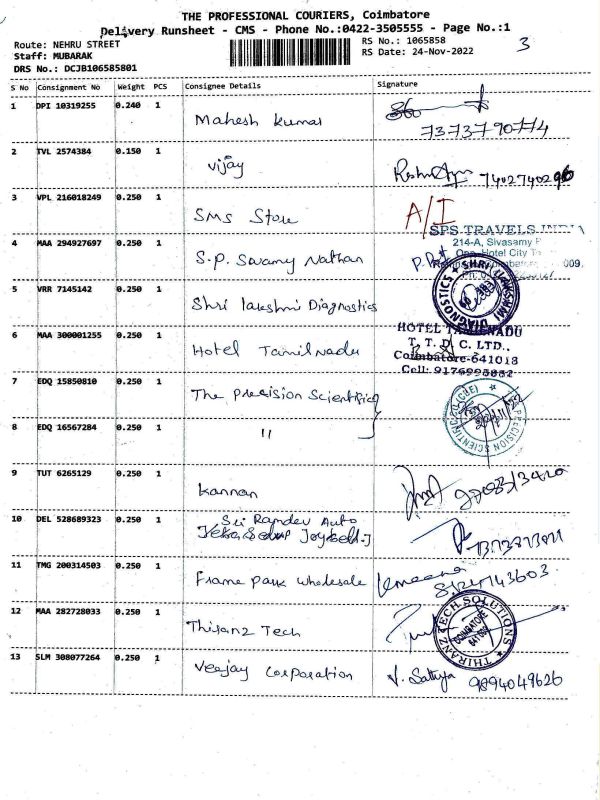 THE PROFESSIONAL COURIERS, Coimbatore
Delivery Runsheet - CMS - Phone No.:0422-3505555 - Page No.:1
Route: NEHRU STREET
RS No.: 1065858
3
Staff: MUBARAK
RS Date: 24-Nov-2022
DRS No.: DCJB106585801
S No Consignment No Weight PCS Consignee Details Signature
1 DPI 10319255 0.240 1 Mahesh Kumar
7373790774
2 TVL 2574384 0.150 1 Vijay 7402740296
3 VPL 216018249 0.250 1 SMS Store A/I
SPS TRAVELS INDIA
214-A, Sivasamy
Opp. Hotel City
4 MAA 294927697 0.250 1 S.P. Swamy Nathan
009,
5 VRR 7145142 0.250 1 Shri lakshmi Diagnostics SHRI LAKSHMI DIAGNOSTICS
6 MAA 300001255 0.250 1 Hotel Tamilnadu HOTEL TAMILNADU
T. T. D. C. LTD.,
Coimbatore-641018
Cell: 9176995632
7 EDQ 15850810 0.250 1 The Precision Scientific
PRECISION SCIENTIFIC
8 EDQ 16567284 0.250 1 "
9 TUT 6265129 0.250 1 Kannan
10 DEL 528689323 0.250 1 Sri Ramdev Auto
11 TMG 200314503 0.250 1 Frame Park Wholesale Kmeena
8124743603
12 MAA 282728033 0.250 1 Thiranz Tech THIRANZ TECH SOLUTIONS
COIMBATORE
13 SLM 308077264 0.250 1 Veejay Corporation V. Sathya 9894049626